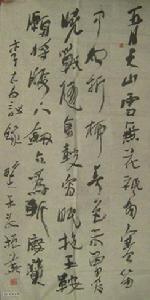 五月天山雪無花祇有寒笛
中聞折柳春色未曾看
曉戰隨金鼓宵眠抱玉鞍
願將腰下劍直為斬樓蘭
李太白詩